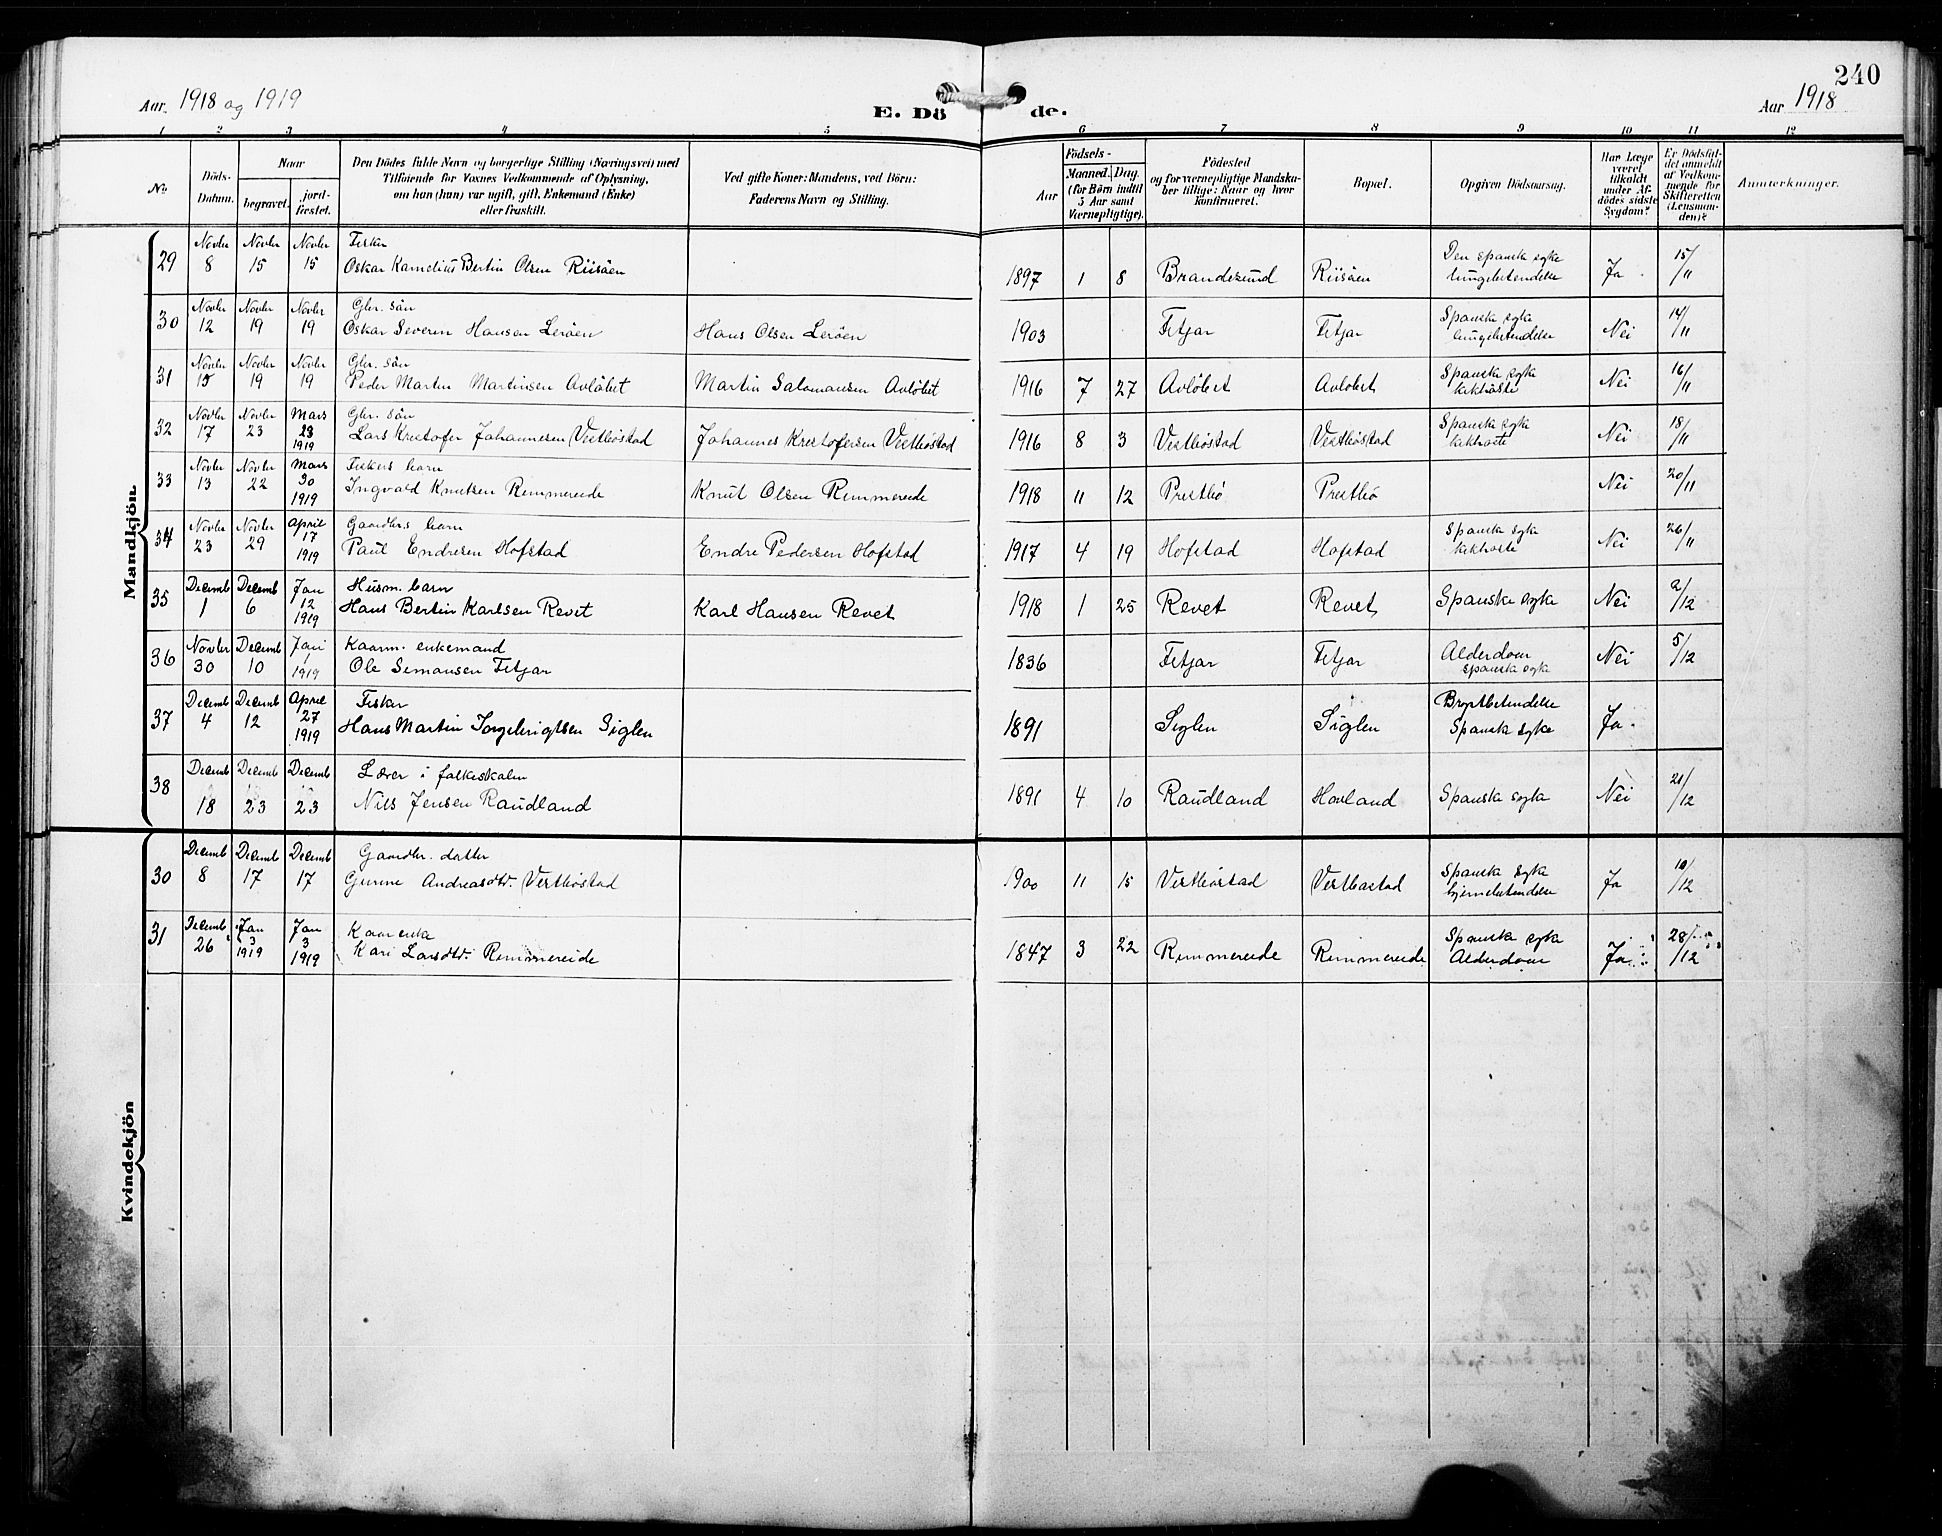 240
Aar 1918 og 1919
E. Dö de.
Aar 1918
1 2 3 4 5 6 7 8 9 10 11 12
No.
Döds-
Datum.
Naar
begravet.
jord-
fæstet.
Den Dödes fulde Navn og borgerlige Stilling (Næringsvei) med
Tilföiende for Voxnes Vedkommende af Oplysning,
om han (hun) var ugift, gift, Enkemand (Enke)
eller fraskilt.
Ved gifte Koner: Mandens, ved Börn:
Faderens Navn og Stilling.
Födsels-
Aar
Maaned. Dag.
(for Börn indtil
5 Aar samt
Værnepligtige).
Födested
og for værnepligtige Mandska-
ber tillige: Naar og hvor
Konfirmeret.
Bopæl.
Opgiven Dödsaarsag.
Har Læge
været
tilkaldt
under Af-
dödes sidste
Sygdom?
Er Dödsfal-
det anmeldt
af Vedkom-
mende for
Skifteretten
(Lensman-
den)?
Anmærkninger.
Mandkjön.
29 Novbr 8 Novbr 15 Novbr 15 Fisker
Oskar Kornelius Bertin Olsen Riisöen 1897 1 8 Brandesund Riisöen Den spanske syke lungebetendelse Ja 15/11
30 Novbr 12 Novbr 19 Novbr 19 Gbr. sön
Oskar Severin Hansen Leröen Hans Olsen Leröen 1903 Fitjar Fitjar Spanske syke lungebetendelse Nei 14/11
31 Novbr 15 Novbr 19 Novbr 19 Gbr. sön
Peder Martin Martinsen Avlöbet Martin Salamonsen Avlöbet 1916 7 27 Avlöbet Avlöbet Spanske syke kikhoste Nei 16/11
32 Novbr 17 Novbr 23 Mars 23 1919 Gbr. sön
Lars Kristofer Johannesen Vestböstad Johannes Kristofersen Vestböstad 1916 8 3 Vestböstad Vestböstad Spanske syke kikhoste Nei 18/11
33 Novbr 13 Novbr 22 Mars 30 1919 Fiskers barn
Ingvald Knutsen Rimmereide Knut Olsen Rimmereide 1918 11 12 Prestbö Prestbö Nei 20/11
34 Novbr 23 Novbr 29 April 17 1919 Gaardbr.s barn
Paul Endresen Hofstad Endre Pedersen Hofstad 1917 4 19 Hofstad Hofstad Spanske syke kikhoste Nei 26/11
35 Decemb 1 Decemb 6 Jan 12 1919 Husm. barn
Hans Bertin Karlsen Revet Karl Hansen Revet 1918 1 25 Revet Revet Spanske syke Nei 2/12
36 Novbr 30 Decemb 10 Jan 1 1919 Kaarm. enkemand
Ole Simonsen Fitjar 1836 Fitjar Fitjar Alderdom spanske syke Nei 5/12
37 Decemb 4 Decemb 12 April 27 1919 Fisker
Hans Martin Torgebrigtsen Siglen 1891 Siglen Siglen Brystbetendelse Spanske syke Ja.
38 Decemb 18 Decemb 23 Decemb 23 Lærer i folkeskolen
Nils Jensen Raudland 1891 4 10 Raudland Hovland Spanske syke Nei 21/12
Kvindekjön
30 Decemb 8 Decemb 17 Decemb 17 Gaardbr. datter
Gurine Andreasdtr. Vestböstad 1900 11 15 Vestböstad Vestbostad Spanske syke hjernebetendelse Ja 10/12
31 Decemb 26 Jan 3 1919 Jan 3 1919 Kaarenke
Kari Larsdtr. Rimmereide 1847 3 22 Rimmereide Rimmereide Spanske syke Alderdom Ja 28/12